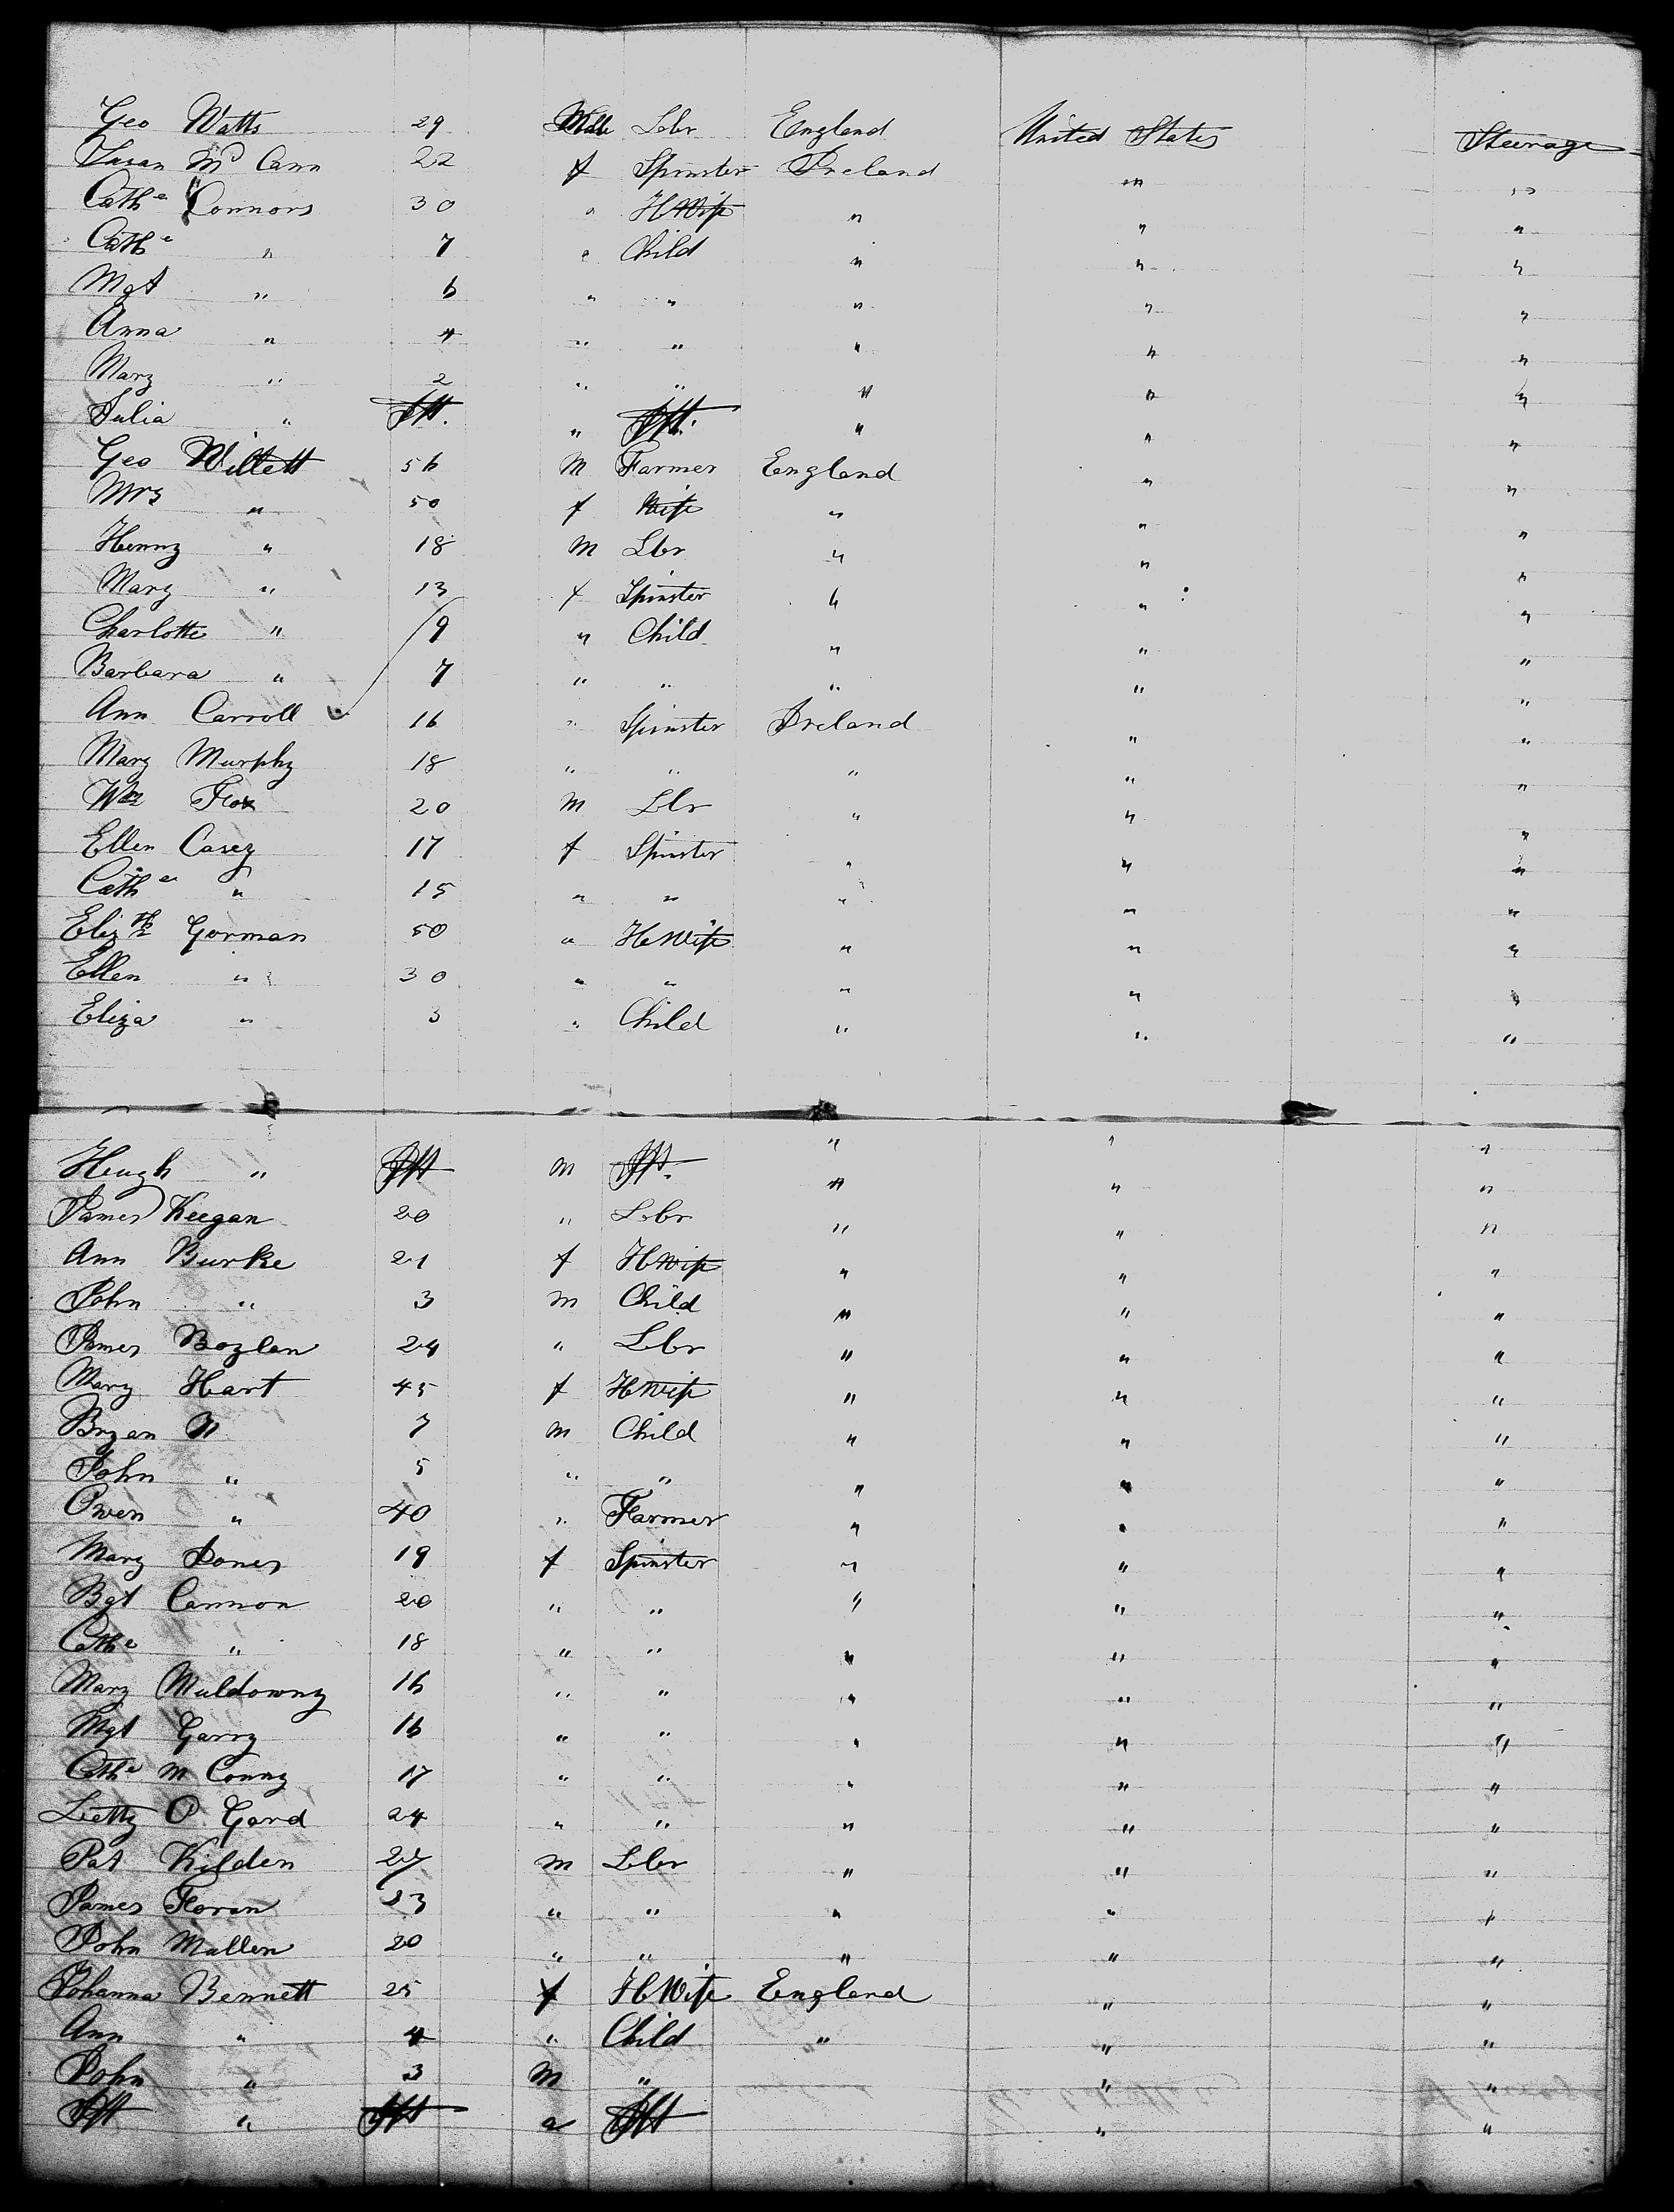 Geo Watts 29 Male Lbr England United States Steerage
Susan Mc Cann 22 f Spinster Ireland " "
Cathe Connors 30 " H Wife " " "
Cathe " 7 " Child " " "
Mgt " 6 " " " " "
Anna " 4 " " " " "
Mary " 2 " " " " "
Julia " Ift. " Ift. " " "
Geo Willett 56 M Farmer England " "
Mrs " 50 f Wife " " "
Henry " 18 M Lbr " " "
Mary " 13 f Spinster " " "
Charlotte " 9 " Child " " "
Barbara " 7 " " " " "
Ann Carroll 16 " Spinster Ireland " "
Mary Murphy 18 " " " " "
Wm Fox 20 M Lbr " " "
Ellen Casey 17 f Spinster " " "
Cathe " 15 " " " " "
Elizth Gorman 50 " H Wife " " "
Ellen " 30 " " " " "
Eliza " 3 " Child " " "
Hugh " Ift m Ift. " " "
James Keegan 20 " Lbr " " "
Ann Burke 21 f H Wife " " "
John " 3 m Child " " "
James Boylan 24 " Lbr " " "
Mary Hart 45 f H Wife " " "
Bryan " 7 m Child " " "
John " 5 " " " " "
Owen " 40 " Farmer " " "
Mary Jones 19 f Spinster " " "
Bgt Cannon 20 " " " " "
Cathe " 18 " " " " "
Mary Muldowny 16 " " " " "
Mgt Garry 16 " " " " "
Cathe M Conny 17 " " " " "
Letty O Gard 24 " " " " "
Pat Kilden 27 m Lbr " " "
James Foran 23 " " " " "
John Mullen 20 " " " " "
Johanna Bennett 25 f H Wife England " "
Ann " 4 " Child " " "
John " 3 M " " "
Ift " Ift " Ift " "